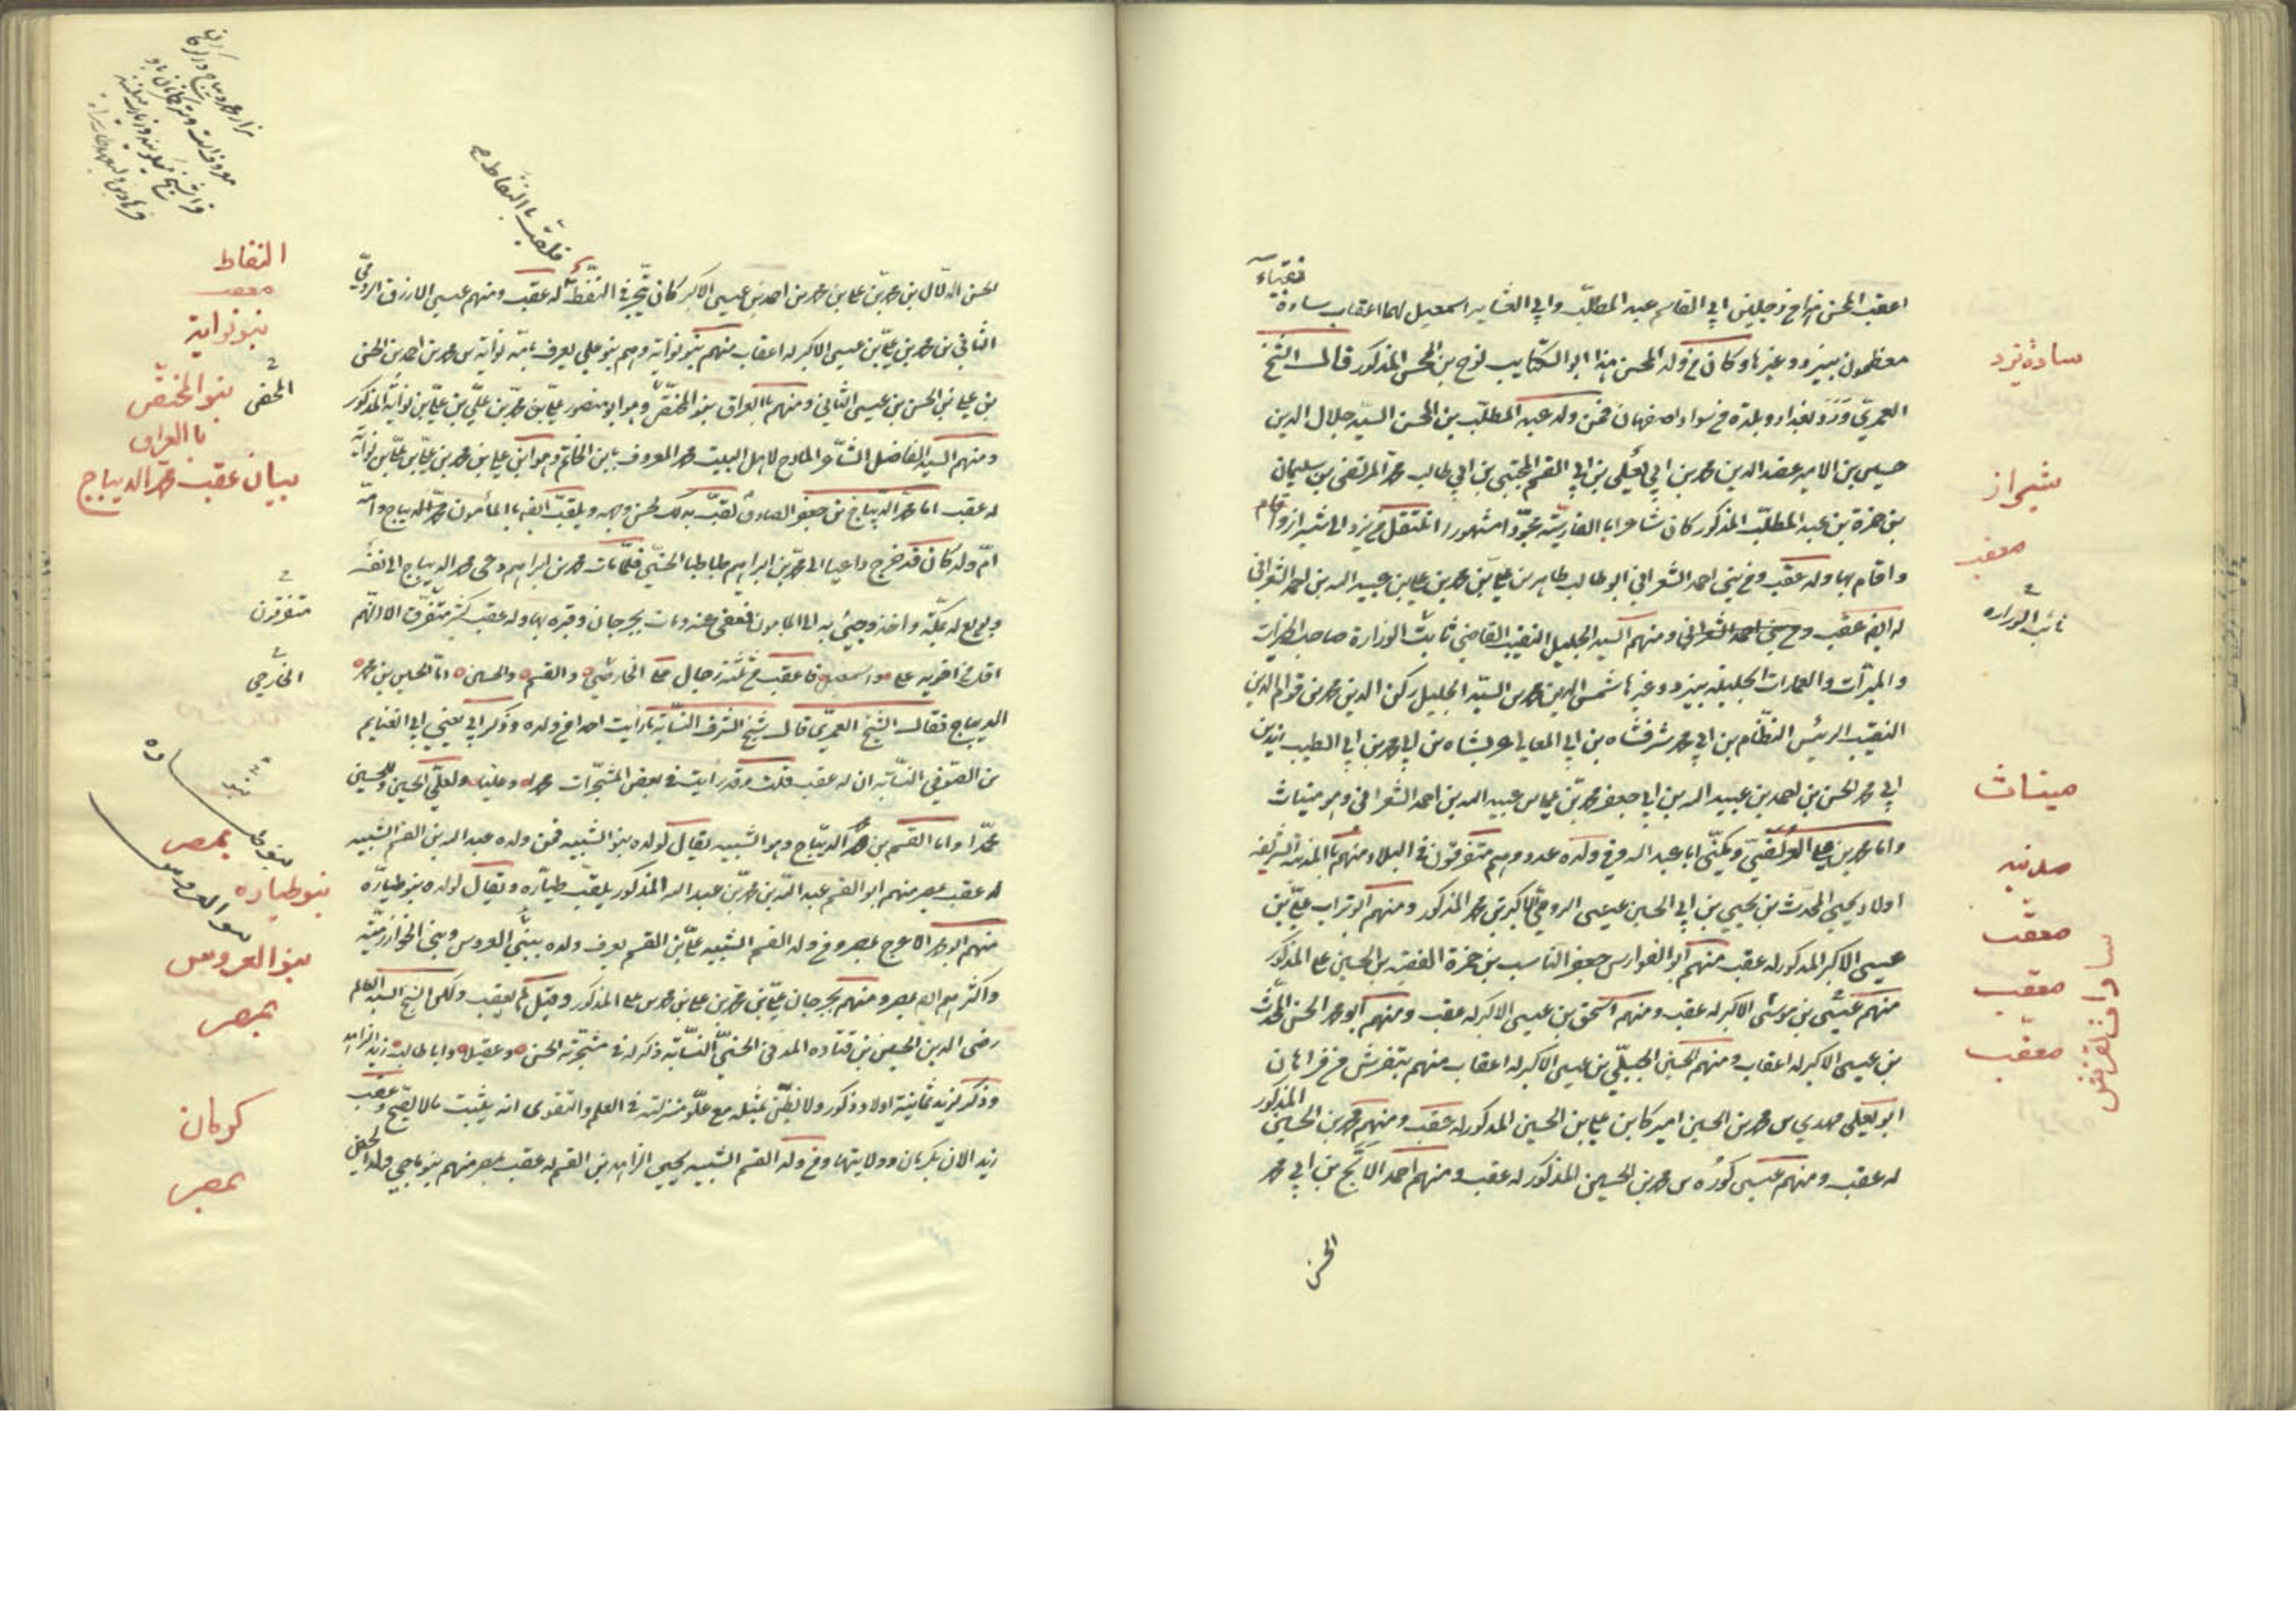 نقباء
اعقب المحسن من رجلين ابي القاسم عبد المطلب وابي العشاير اسمعيل لهما اعقاب سادة
معظمون بيزد وغيرها وكان من ولد المحسن هذا ابو الكتايب نوح بن المحسن المذكور قال الشيخ
العمري ورد بغداد وبلده من سواد اصفهان فمن ولد عبد المطلب بن المحسن السيد جلال الدين
حسين بن الامير عضد الدين محمد بن ابي يعلى بن ابي القسم المجتبى بن ابي طالب محمد المرتضى بن سليمان
بن حمزة بن عبد المطلب المذكور كان شاعرا بالفارسية مجودا مشهورا انتقل من يزد الى شيراز
واقام بها وله عقب ومن بني احمد الشعراني ابو طالب طاهر بن علي بن محمد بن علي بن عبيد الله بن احمد الشعراني
له ايضا عقب ومنهم السيد الجليل النقيب القاضي نائب الوزارة صاحب الخيرات
والمبرات والعمارات الجليلة بيزد وغيرها شمس الدين محمد بن السيد الجليل ركن الدين محمد بن قوام الدين
النقيب الرئيس النظام بن ابي محمد شرفشاه بن ابي المعالي عربشاه بن ابي محمد بن ابي الطيب زيد بن
ابي محمد الحسن بن احمد بن عبيد الله بن ابي جعفر محمد بن علي بن عبيد الله بن احمد الشعراني وهو ميناث
واما محمد بن علي العريضي ويكنى ابا عبد الله وفي ولده عدد وهم متفرقون في البلاد منهم بالمدينة الشريفة
اولاد يحيى المحدث بن يحيى بن ابي الحسين عيسى الرومي الاكبر بن محمد المذكور ومنهم ابو تراب علي بن
عيسى الاكبر المذكور له عقب منهم ابو الفوارس جعفر الناسب بن حمزة الفقيه بن الحسين بن علي المذكور
منهم عيسى بن موسى الاكبر له عقب ومنهم اسحق بن عيسى الاكبر له عقب ومنهم ابو محمد الحسن المحدث
بن عيسى الاكبر له اعقاب ومنهم الحسين الجبلي بن عيسى الاكبر له اعقاب منهم بتفرش من فراهان
ابو يعلى مهدي بن محمد بن الحسين اميركا بن علي بن الحسين المذكور له عقب ومنهم محمد بن الحسين المذكور
له عقب ومنهم عيسى كوره بن محمد بن الحسين المذكور له عقب ومنهم احمد الابح بن ابي محمد
الحسن
سادة يزد
شيراز
معقب
نائب الوزاره
ميناث
مدنيه
معقب
معقب
معقب
سادات تفرش
فلقب بالنفاط
الحسن الدلال بن محمد بن علي بن محمد بن احمد بن عيسى الاكبر كان يتجر في النفط له عقب ومنهم عيسى الازرق الرومي
الثاني بن محمد بن علي بن عيسى الاكبر له اعقاب منهم بنو نواية وهم بنو علي يعرف بامه نواية بن محمد بن احمد بن الحسن
بن علي بن الحسن بن عيسى الثاني ومنهم بالعراق بنو المختص وهو ابو منصور علي بن محمد بن علي بن علي بن نواية المذكور
ومنهم السيد الفاضل الشاعر المادح لاهل البيت محمد المعروف بابن الحاتم وهو ابن علي بن محمد بن علي بن علي بن نواية
له عقب اما محمد الديباج بن جعفر الصادق لقب بذلك لحسن وجهه ويلقب ايضا بالمأمون محمد الديباج وامه
ام ولد كان قد خرج داعيا الى محمد بن ابراهيم طباطبا الحسني فلما مات محمد بن ابراهيم دعى محمد الديباج الى نفسه
وبويع له بمكة واخذ وجيئ به الى المأمون فعفى عنه ومات بجرجان وقبره بها وله عقب كثير متفرق الا انهم
اقل من اخويه علي واسمعيل فاعقب من ثلثة رجال علي الخارصي والقسم والحسين اما الحسين بن محمد
الديباج فقال الشيخ العمري قال شيخ الشرف النسابة ما رأيت احدا من ولده وذكر ابي يعني ابي الغنايم
بن الصوفي النسابة ان له عقب قلت وقد رأيت في بعض المشجرات محمدا وعليا ولعلي الحسين وللحسين
محمدا واما القسم بن محمد الديباج وهو الشبيه يقال لولده بنو الشبيه فمن ولده عبد الله بن القسم الشبيه
له عقب بمصر منهم ابو القسم عبد الله بن محمد بن عبد الله المذكور يلقب طياره ويقال لولده بنو طياره
منهم ابو محمد الاعرج بمصر ومن ولد القسم الشبيه علي بن القسم يعرف ولده ببني العروس وبني الخوارزمية
واكثرهم ايضا بمصر ومنهم بجرجان علي بن محمد بن علي بن محمد بن علي المذكور وقيل لم يعقب ولكن الشيخ السيد العالم
رضي الدين الحسين بن قتادة المدني الحسني النسابة ذكر له في مشجرته الحسن وعقيل وابا طالب زيد الزاهد
وذكر لزيد ثمانية اولاد ذكور ولا نظن بمثله مع علو منزلته في العلم والتقوى انه يثبت ما لا يصح وعقب
زيد الان بكرمان وولايتها ومن ولد القسم الشبيه يحيى الزاهد بن القسم له عقب بمصر منهم بنو ماجي ولد الحسن
النفاط
معقب
بنو نواية
بنو المختص
بالعراق
بيان عقب محمد الديباج
متفرقون
بمصر
بنو طياره
بنو العروس
بمصر
كرمان
بمصر